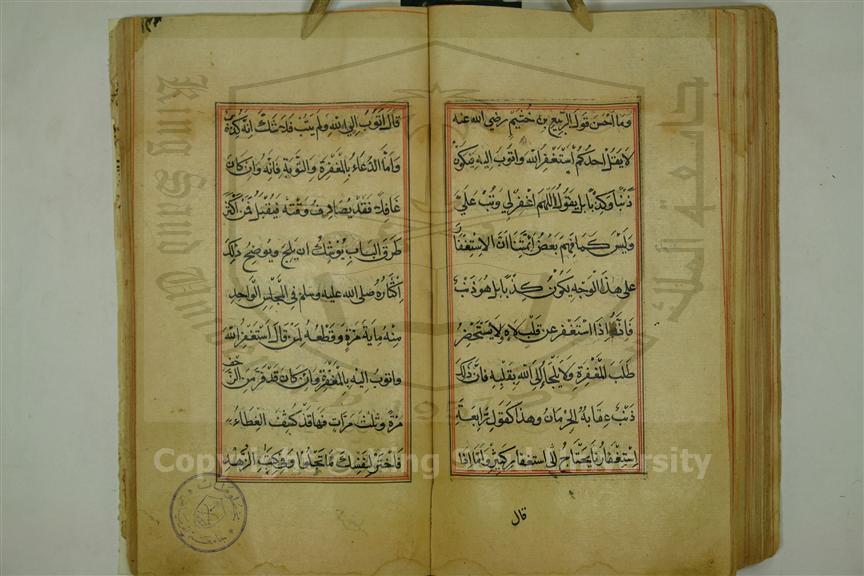 وما احسن قول الربيع بن خثيم رضي الله عنه
لا يقل احدكم استغفر الله واتوب اليه فيكون
ذنبا وكذبا بل يقول اللهم اغفر لي وتب علي
وليس كما فهم بعض ائمتنا ان الاستغفار
على هذا الوجه يكون كذبا بل هو ذنب
فانه اذا استغفر عن قلب لاه ولا يستحضر
طلب المغفرة ولا يلجأ الى الله بقلبه فان ذلك
ذنب عقابه الحرمان وهذا كقول رابعة
استغفارنا يحتاج الى استغفار كثير واما اذا
قال
قال اتوب الى الله ولم يتب فلا شك انه كذب
واما الدعاء بالمغفرة والتوبة فانه وان كان
غافلا فقد يصادف وقته فيقبل فمن اكثر
طرق الباب يوشك ان يلج ويوضح ذلك
اكثاره صلى الله عليه وسلم في المجلس الواحد
منه ماية مرة وقطعه لمن قال استغفر الله
واتوب اليه بالمغفرة وان كان قد فر من الزحف
مرة وثلث مرات فها قد كشف الغطاء
فاختر لنفسك ما
Copyright © King Saud University
King Saud University
جامعة الملك
1957